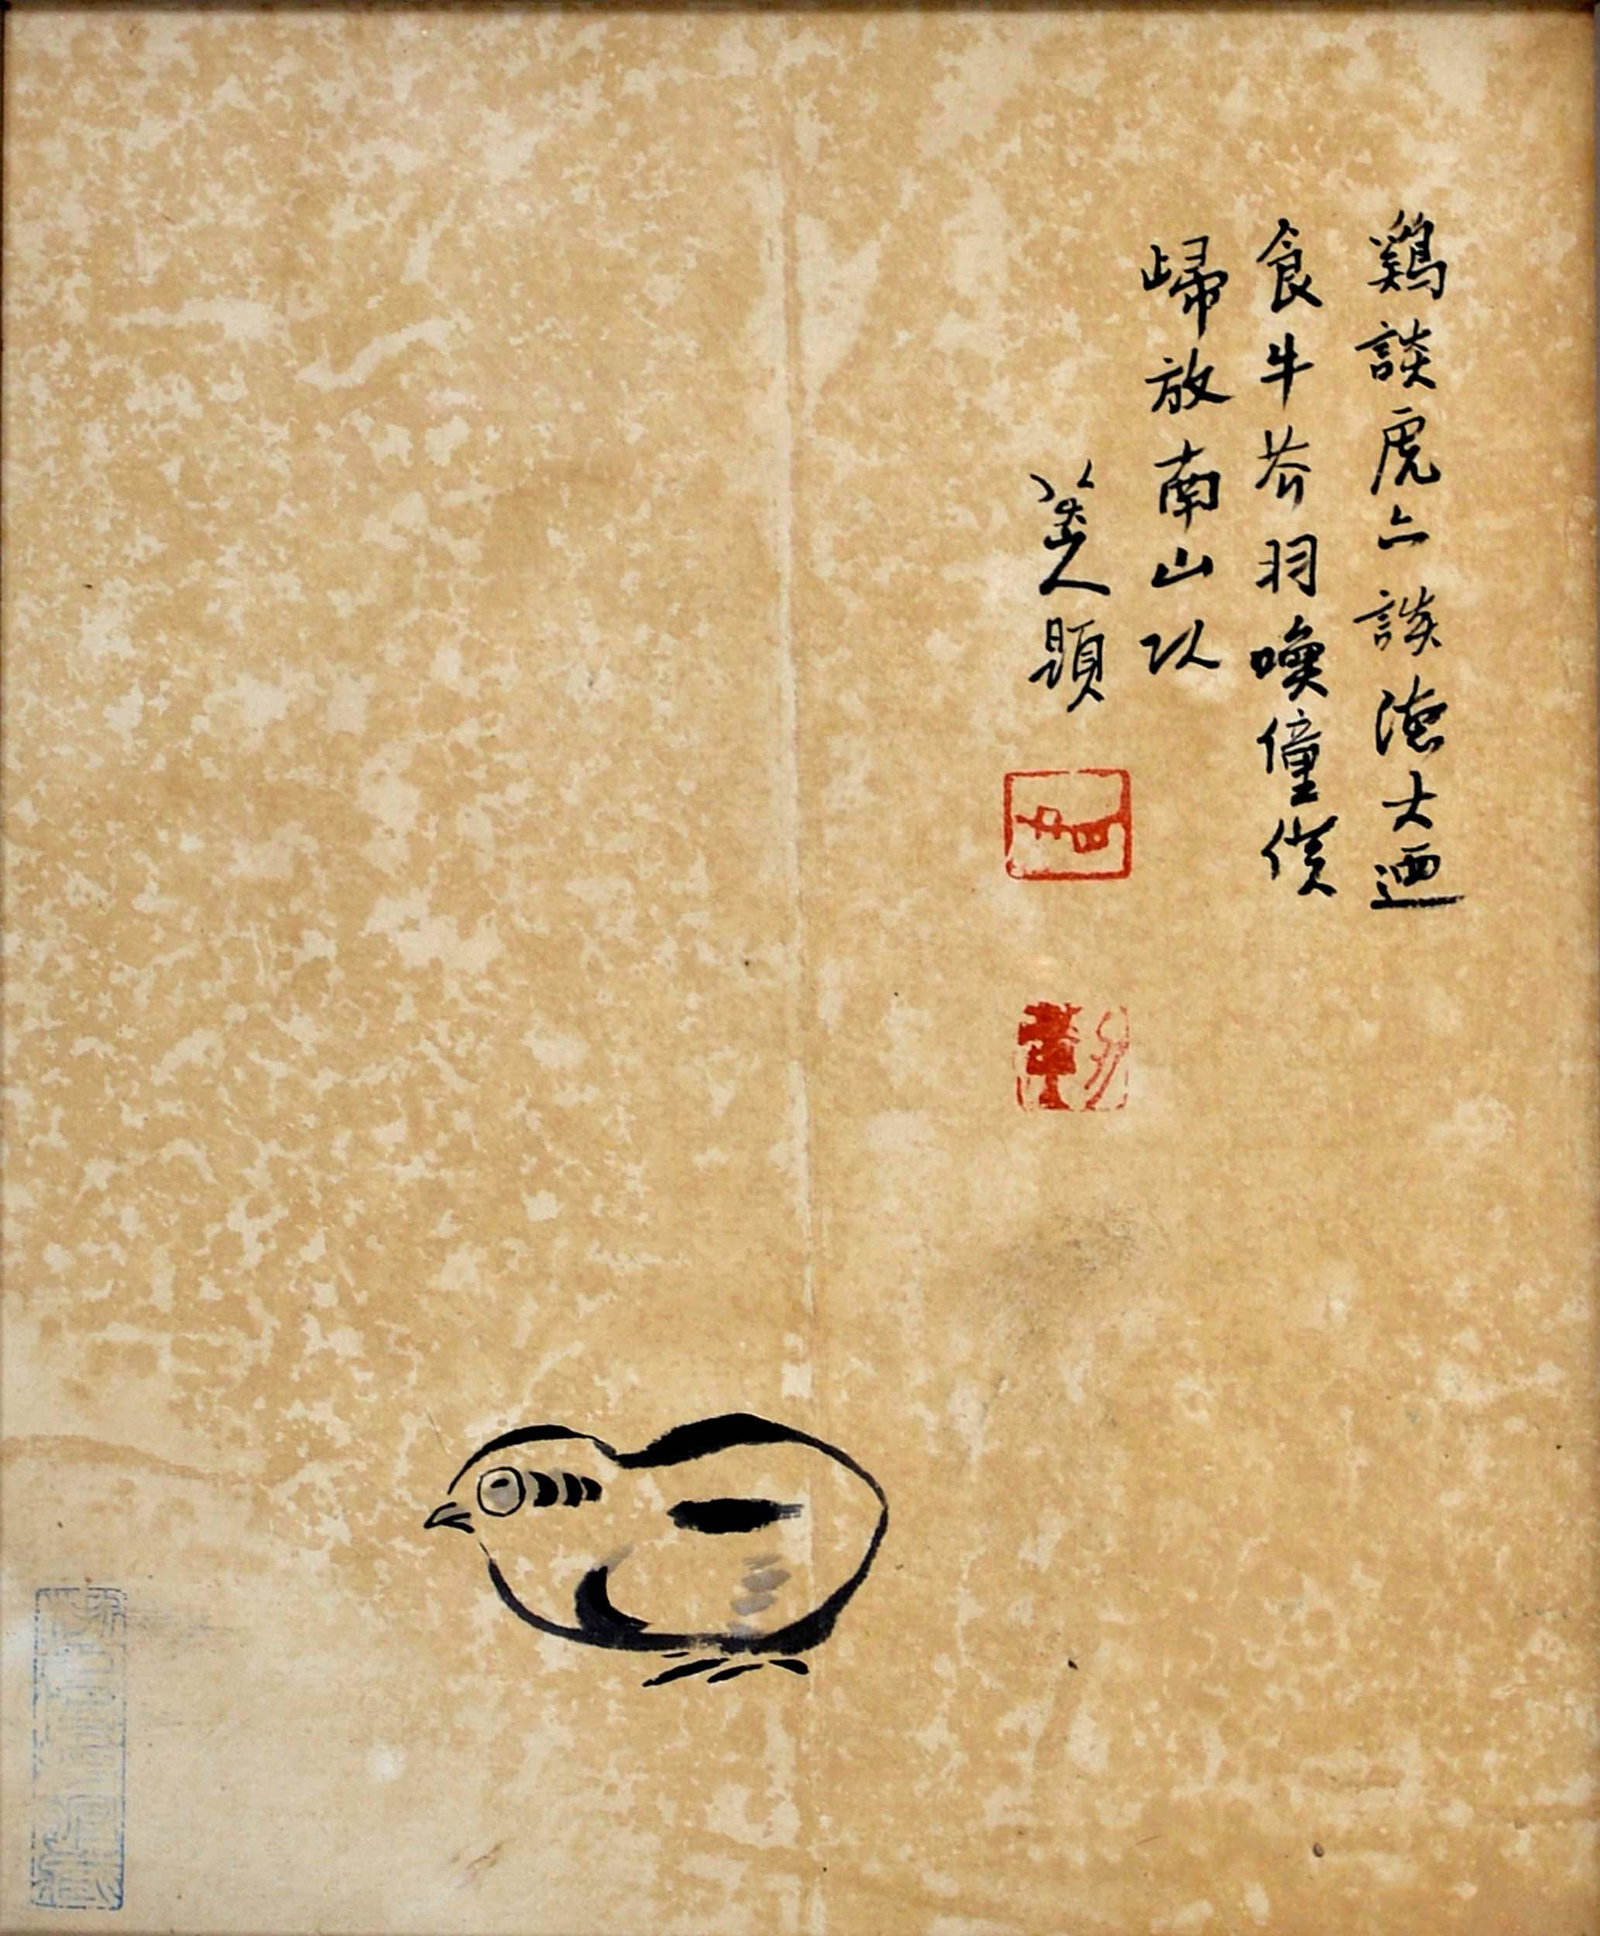 鷄談虎亦談德大迺
食牛芥羽喚僮僕
歸放南山以
八大山人題